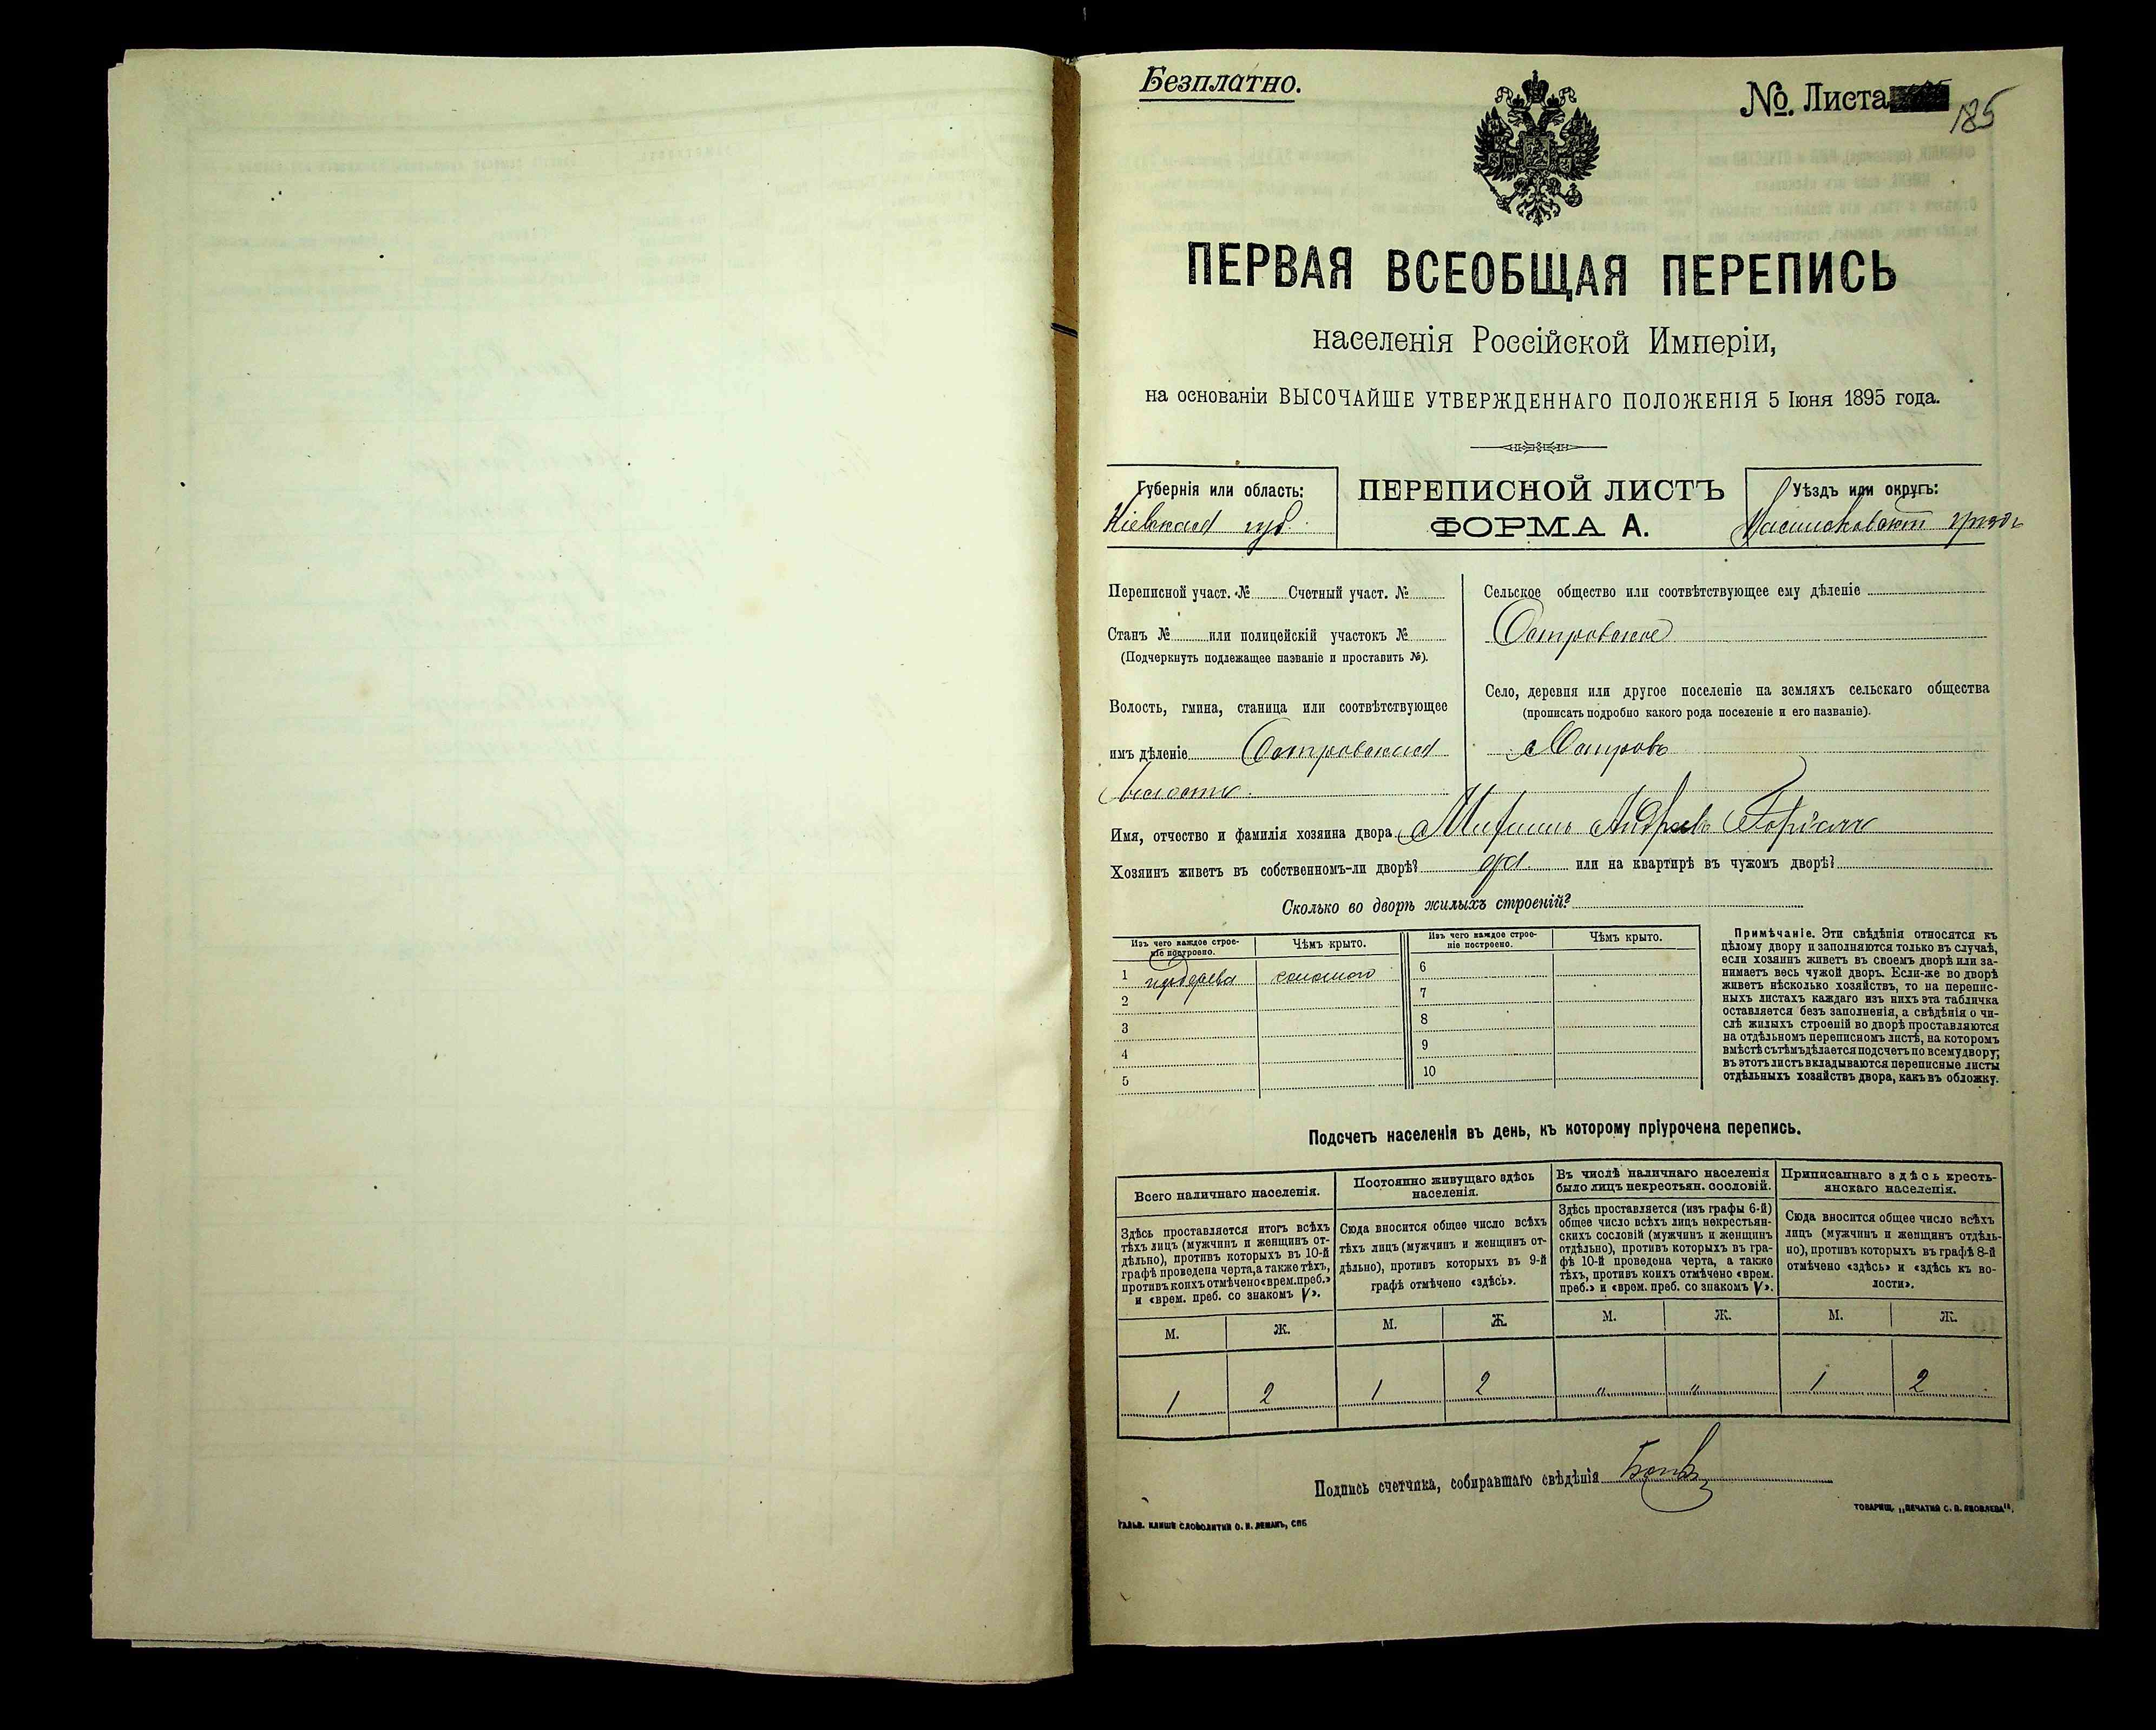 Безплатно.
№. Листа 185
ПЕРВАЯ ВСЕОБЩАЯ ПЕРЕПИСЬ
населенія Россійской Имперіи,
на основаніи ВЫСОЧАЙШЕ УТВЕРЖДЕННАГО ПОЛОЖЕНІЯ 5 Іюня 1895 года.
Губернія или область:
Кіевская губ.
ПЕРЕПИСНОЙ ЛИСТЪ
ФОРМА А.
Уѣздъ или округъ:
Переписной участ. № Счетный участ. №
Станъ № или полицейскій участокъ №
(Подчеркнуть подлежащее названіе и проставить №).
Волость, гмина, станица или соотвѣтствующее
имъ дѣленіе Островская
волость.
Сельское общество или соотвѣтствующее ему дѣленіе
Островское
Село, деревня или другое поселеніе на земляхъ сельскаго общества
(прописать подробно какого рода поселеніе и его названіе).
с Островъ
Имя, отчество и фамилія хозяина двора Андреевъ
Хозяинъ живетъ въ собственномъ-ли дворѣ? да или на квартирѣ въ чужомъ дворѣ?
Сколько во дворѣ жилыхъ строеній?
Изъ чего каждое строе-
ніе построено.
Чѣмъ крыто.
Изъ чего каждое строе-
ніе построено.
Чѣмъ крыто.
1 изъ дерева соломою
2
3
4
5
6
7
8
9
10
Примѣчаніе. Эти свѣдѣнія относятся къ
цѣлому двору и заполняются только въ случаѣ,
если хозяинъ живетъ въ своемъ дворѣ или за-
нимаетъ весь чужой дворъ. Если-же во дворѣ
живетъ нѣсколько хозяйствъ, то на перепис-
ныхъ листахъ каждаго изъ нихъ эта табличка
оставляется безъ заполненія, а свѣдѣнія о чи-
слѣ жилыхъ строеній во дворѣ проставляются
на отдѣльномъ переписномъ листѣ, на которомъ
вмѣстѣ съ тѣмъ дѣлается подсчетъ по всему двору;
въ этотъ листъ вкладываются переписные листы
отдѣльныхъ хозяйствъ двора, какъ въ обложку.
Подсчетъ населенія въ день, къ которому пріурочена перепись.
Всего наличнаго населенія.
Здѣсь проставляется итогъ всѣхъ
тѣхъ лицъ (мужчинъ и женщинъ от-
дѣльно), противъ которыхъ въ 10-й
графѣ проведена черта, а также тѣхъ,
противъ коихъ отмѣчено «врем. преб.»
и «врем. преб. со знакомъ V».
Постоянно живущаго здѣсь
населенія.
Сюда вносится общее число всѣхъ
тѣхъ лицъ (мужчинъ и женщинъ от-
дѣльно), противъ которыхъ въ 9-й
графѣ отмѣчено «здѣсь».
Въ числѣ наличнаго населенія
было лицъ некрестьян. сословій.
Здѣсь проставляется (изъ графы 6-й)
общее число всѣхъ лицъ некрестьян-
скихъ сословій (мужчинъ и женщинъ
отдѣльно), противъ которыхъ въ гра-
фѣ 10-й проведена черта, а также
тѣхъ, противъ коихъ отмѣчено «врем.
преб.» и «врем. преб. со знакомъ V».
Приписаннаго здѣсь кресть-
янскаго населенія.
Сюда вносится общее число всѣхъ
лицъ (мужчинъ и женщинъ отдѣль-
но), противъ которыхъ въ графѣ 8-й
отмѣчено «здѣсь» и «здѣсь къ во-
лости».
М. Ж. М. Ж. М. Ж. М. Ж.
1 2 1 2 " " 1 2
Подпись счетчика, собиравшаго свѣдѣнія
ГАЛЬВ. КЛИШЕ СЛОВОЛИТНИ О. И. ЛЕМАНЪ, СПБ
ТОВАРИЩ. „ПЕЧАТНЯ С. П. ЯКОВЛЕВА".